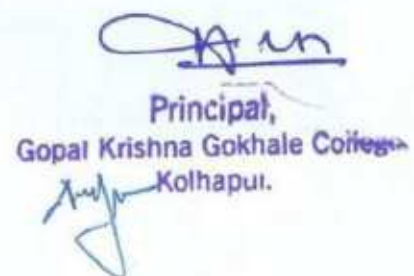 Principal,
Gopal Krishna Gokhale College
Kolhapur.